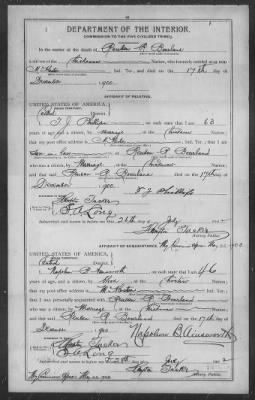 DEPARTMENT OF THE INTERIOR.
COMMISSION TO THE FIVE CIVILIZED TRIBES.
In the matter of the death of Reuben R. Bourland
a citizen of the Chickasaw Nation, who formerly resided at or near
McAlester, Ind. Ter., and died on the 17th day of
December, 1900
AFFIDAVIT OF RELATIVE.
UNITED STATES OF AMERICA,
Central District.
I, T. J. Phillips, on oath state that I am 63
years of age and a citizen, by marriage, of the Chickasaw
Nation; that my post office address is McAlester, Ind. Ter.; that I am
Son in law of Reuben R. Bourland
who was a citizen, by Marriage, of the Chickasaw
Nation; and that said Reuben R. Bourland died on the 17th
day of December, 1900
T. J. Phillips
D. A. Long
Subscribed and sworn to before me this day of July 1902
Notary Public.
AFFIDAVIT OF ACQUAINTANCE.
UNITED STATES OF AMERICA,
Central District.
I, Napoleon B. Ainsworth, on oath state that I am 46
years of age, and a citizen by blood of the Choctaw Nation;
that my post office address is McAlester, Ind. Ter.;
that I was personally acquainted with Reuben R. Bourland
who was a citizen, by Marriage, of the Chickasaw
Nation; and that said Reuben R. Bourland died on the 17th day of
December, 1900
Napoleon B. Ainsworth
D. A. Long
Subscribed and sworn to before me this day of July 1902
Notary Public.